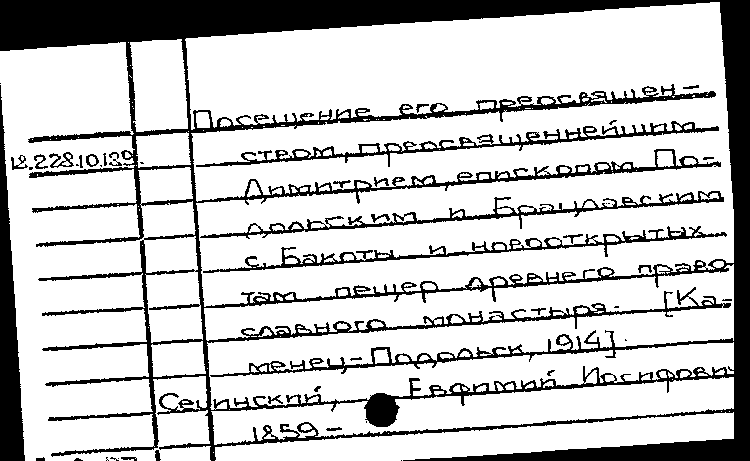 Посещение его преосвящен-
18.228.10.139. ством, преосвященнейшим
Димитрием, епископом По-
дольским и Брацлавским
с. Бакоты и новооткрытых
там пещер древнего право-
славного монастыря. [Ка-
менец-Подольск, 1914].
Сецинский, Евфимий Иосифович
1859-